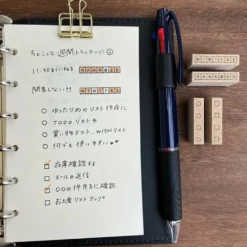 ちょこっと週間トラッカーに☺
11:30までにねる
間食しない!!
○ ゆったりめのリスト作成に
○ TODOリストや
○ 買い物リスト、WISHリスト
○ 何でも使いやすい♥♥
☑ 在庫確認する
□ メールの返信
☑ ○○の件 先方に確認
□ お土産リストアップ